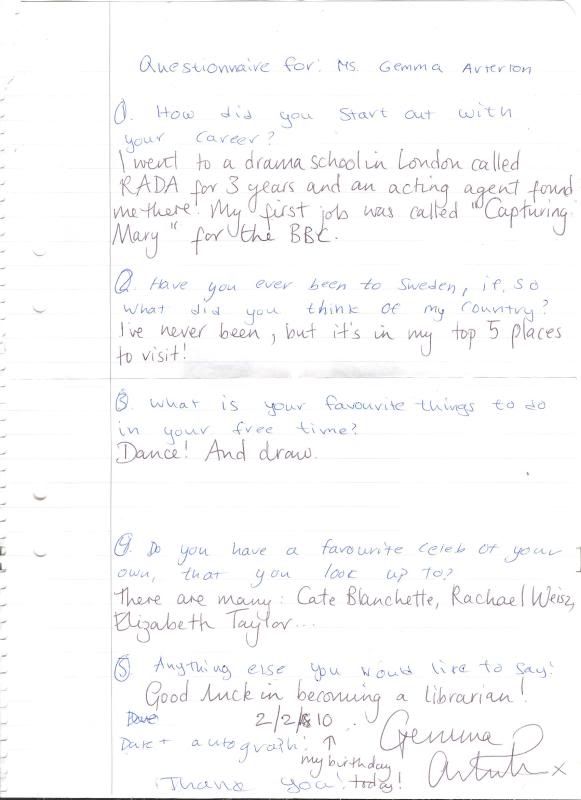 Questionnaire for: Ms. Gemma Arterton
1. How did you start out with
your career?
I went to a drama school in London called
RADA for 3 years and an acting agent found
me there. My first job was called "Capturing
Mary" for the BBC.
2. Have you ever been to Sweden, if so
what did you think of my country?
I've never been, but it's in my top 5 places
to visit!
3. What is your favourite things to do
in your free time?
Dance! And draw.
4. Do you have a favourite celeb of your
own, that you look up to?
There are many: Cate Blanchette, Rachael Weisz,
Elizabeth Taylor...
5. Anything else you would like to say?
Good luck in becoming a librarian!
Date 2/2/10.
Date + autograph: ↑ Gemma
my birthday Arterton x
Thank you! today!